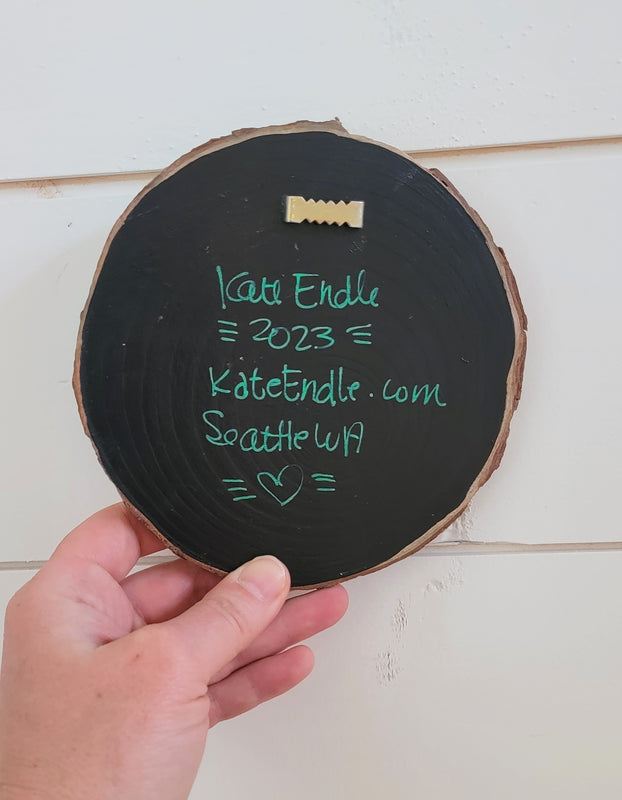 Kate Endle
2023
KateEndle.com
Seattle WA